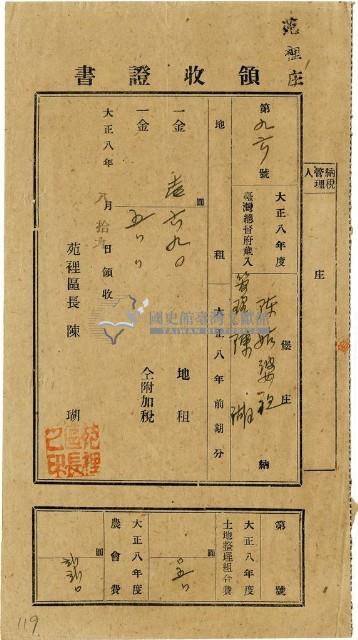 苑裡庄
領收證書
納稅管理人
庄
第九六號
大正八年度
臺灣總督府歲入
陳
堡
庄
納
管理陳瑚
地租
大正八年前期分
一金
圓
六九〇
地租
一金
五〇
仝附加稅
大正八年
月
日領收
苑裡區長 陳 瑚
苑裡區長之印
國史館臺灣文獻館
TAIWAN HISTORICA
第
號
大正八年度
土地整理組合費
大正八年度
農會費
圓
119